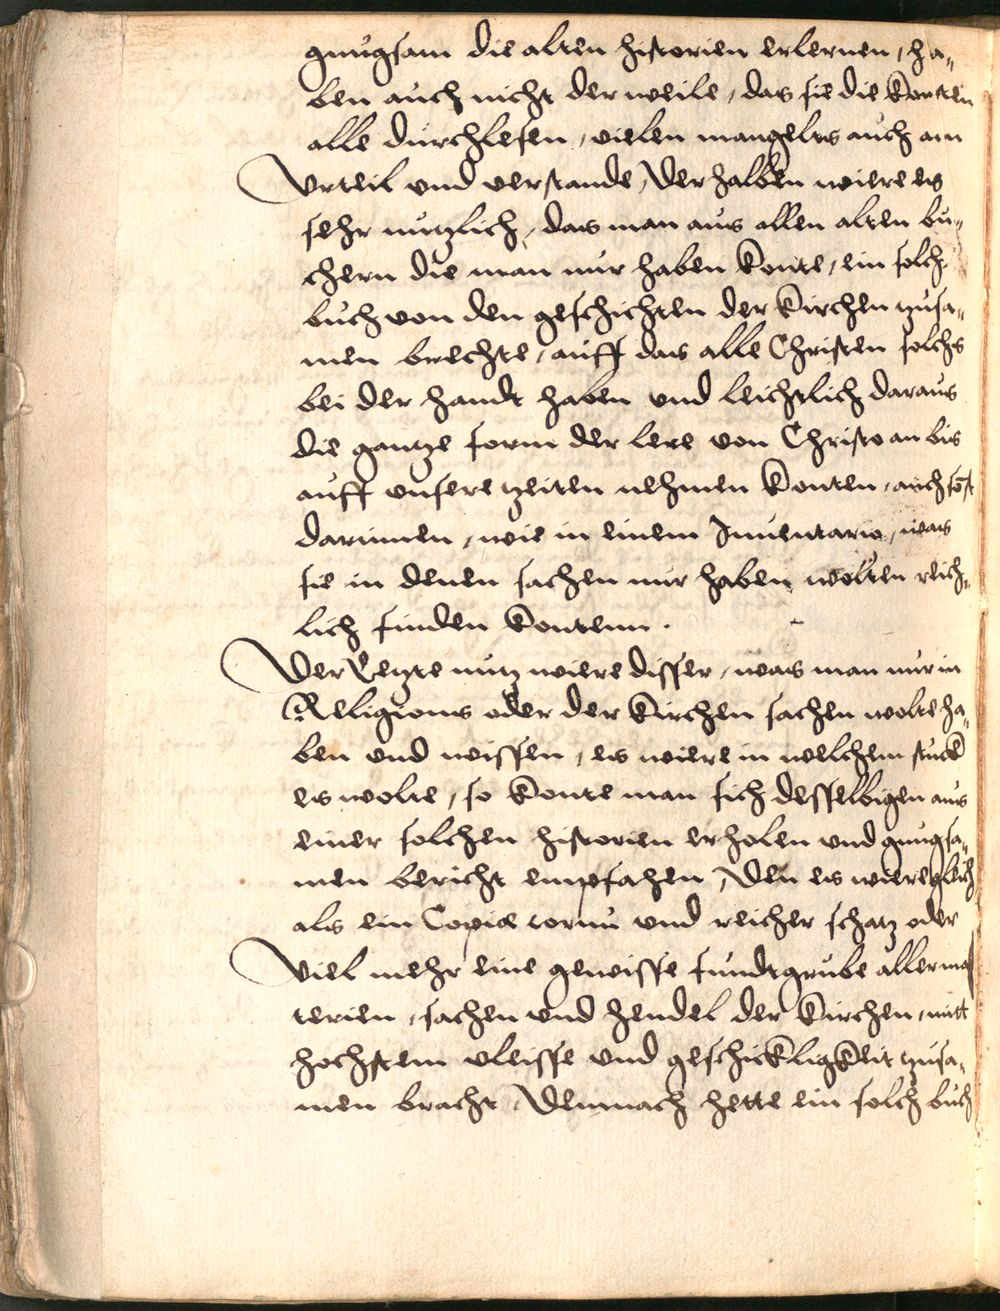 gnugsam die alten historien erlernen, ha-
ben auch nicht der weile, das sie die konten
alle durchlesen, vielen mangelts auch am
Urteil und verstande, Derhalben were es
sehr nutzlich, das man aus allen alten bu-
chern die man nur haben konte, ein solch
buch von den geschichten der kirchen zusa-
men brechte, auff das alle Christen solchs
bei der handt haben und leichtlich daraus
die gantze form der lere von Christo an bis
auff unsere zeiten nehmen konten, auch sost
darinnen, wie in einem Inventario, was
sie in denen sachen nur haben wolten reich-
lich finden kontenn.
Der letzte nutz were disser, was man nur in
Religions oder der kirchen sachen wolte ha-
ben und wissen, es were in welchem stuck
es wolte, so konte man sich desselbigen aus
einer solchen historien erholen und gnugsa-
men bericht empfahen, Den es were gleich
als ein Copiæ cornu und reicher schatz oder
Viel mehr eine gewisse fundtgrube aller ma-
terien, sachen und hendel der kirchen, mitt
hochstem vleisse und geschickligkeit zusa-
men bracht, Demnach hette ein solch buch